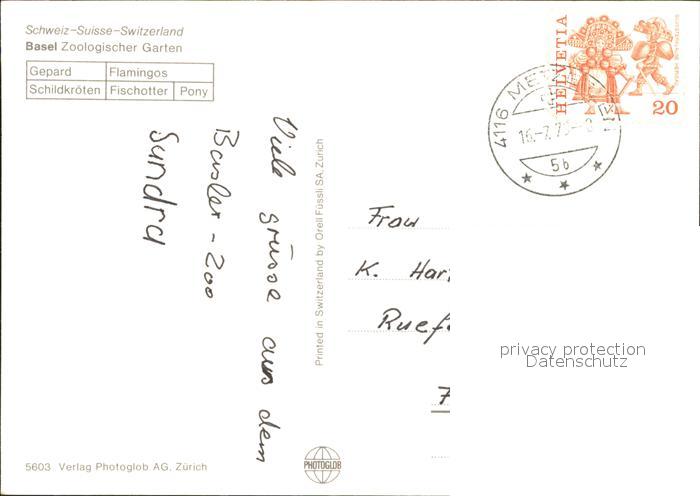 Schweiz-Suisse-Switzerland
Basel Zoologischer Garten
Gepard Flamingos
Schildkröten Fischotter Pony
Viele grüsse aus dem
Basler-Zoo
Sandra
Printed in Switzerland by Orell Füssli SA, Zürich
HELVETIA
20
4116
5b
Frau
K. Har
Ruef
privacy protection
Datenschutz
5603 Verlag Photoglob AG, Zürich
PHOTOGLOB